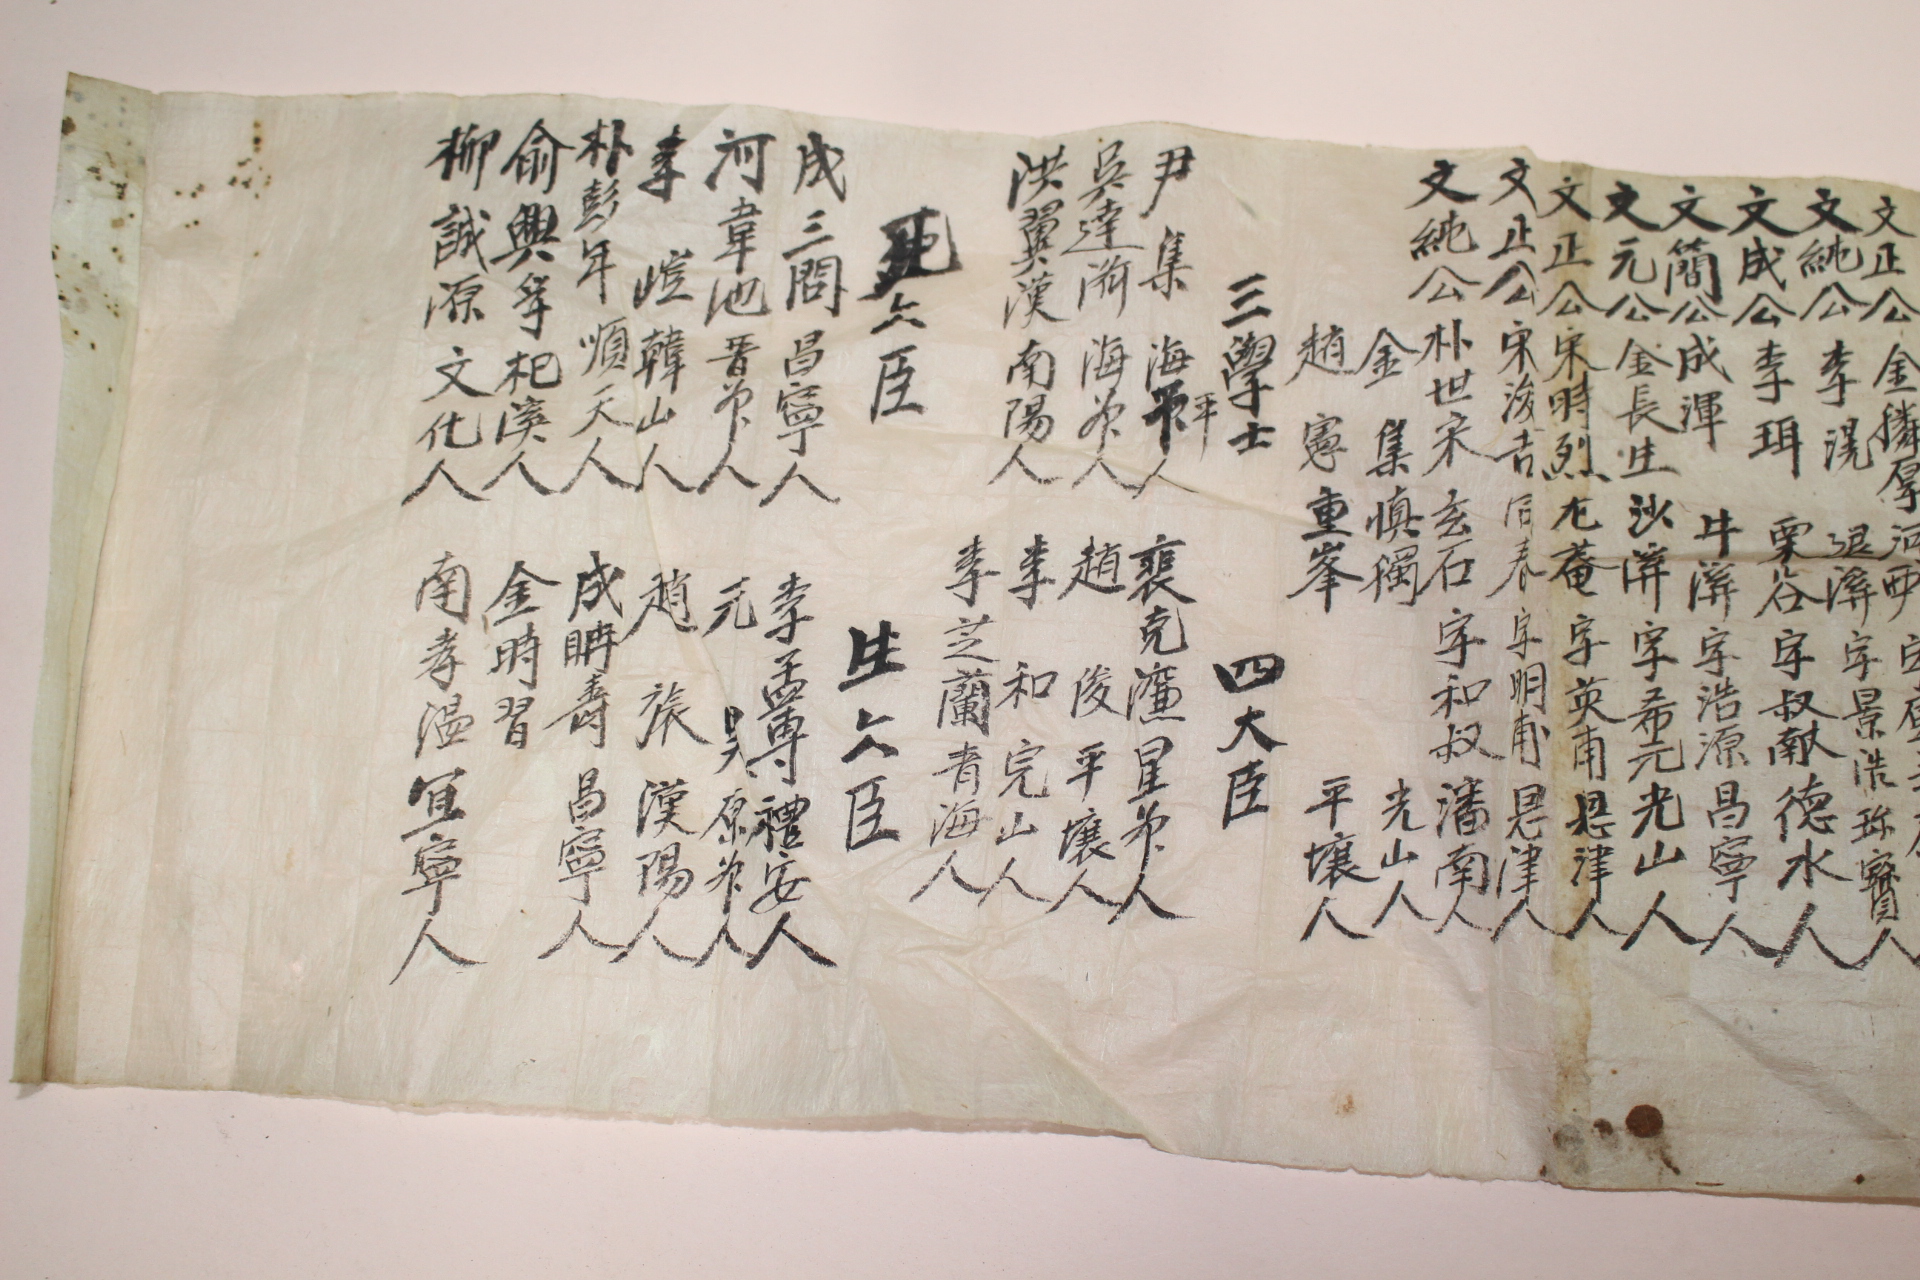 文正公 金麟厚 河西
文純公 李滉 退溪 字景浩 珎寶人
文成公 李珥 栗谷 字叔献 德水人
文簡公 成渾 牛溪 字浩源 昌寧人
文元公 金長生 沙溪 字希元 光山人
文正公 宋時烈 尤菴 字英甫 恩津人
文正公 宋浚吉 同春 字明甫 恩津人
文純公 朴世宋 玄石 字和叔 潘南人
金集 慎獨 光山人
趙憲 重峯 平壤人
三學士
尹集 海平人
平
吳達濟 海州人
洪翼漢 南陽人
四大臣
裵克濂 星州人
趙俊 平壤人
李和 完山人
李芝蘭 青海人
死六臣
成三問 昌寧人
河韋池 晋州人
李塏 韓山人
朴彭年 順天人
俞興 杞溪人
柳誠源 文化人
生六臣
李孟專 禮安人
元昊 原州人
趙旅 漢陽人
成聃壽 昌寧人
金時習
南孝溫 宜寧人